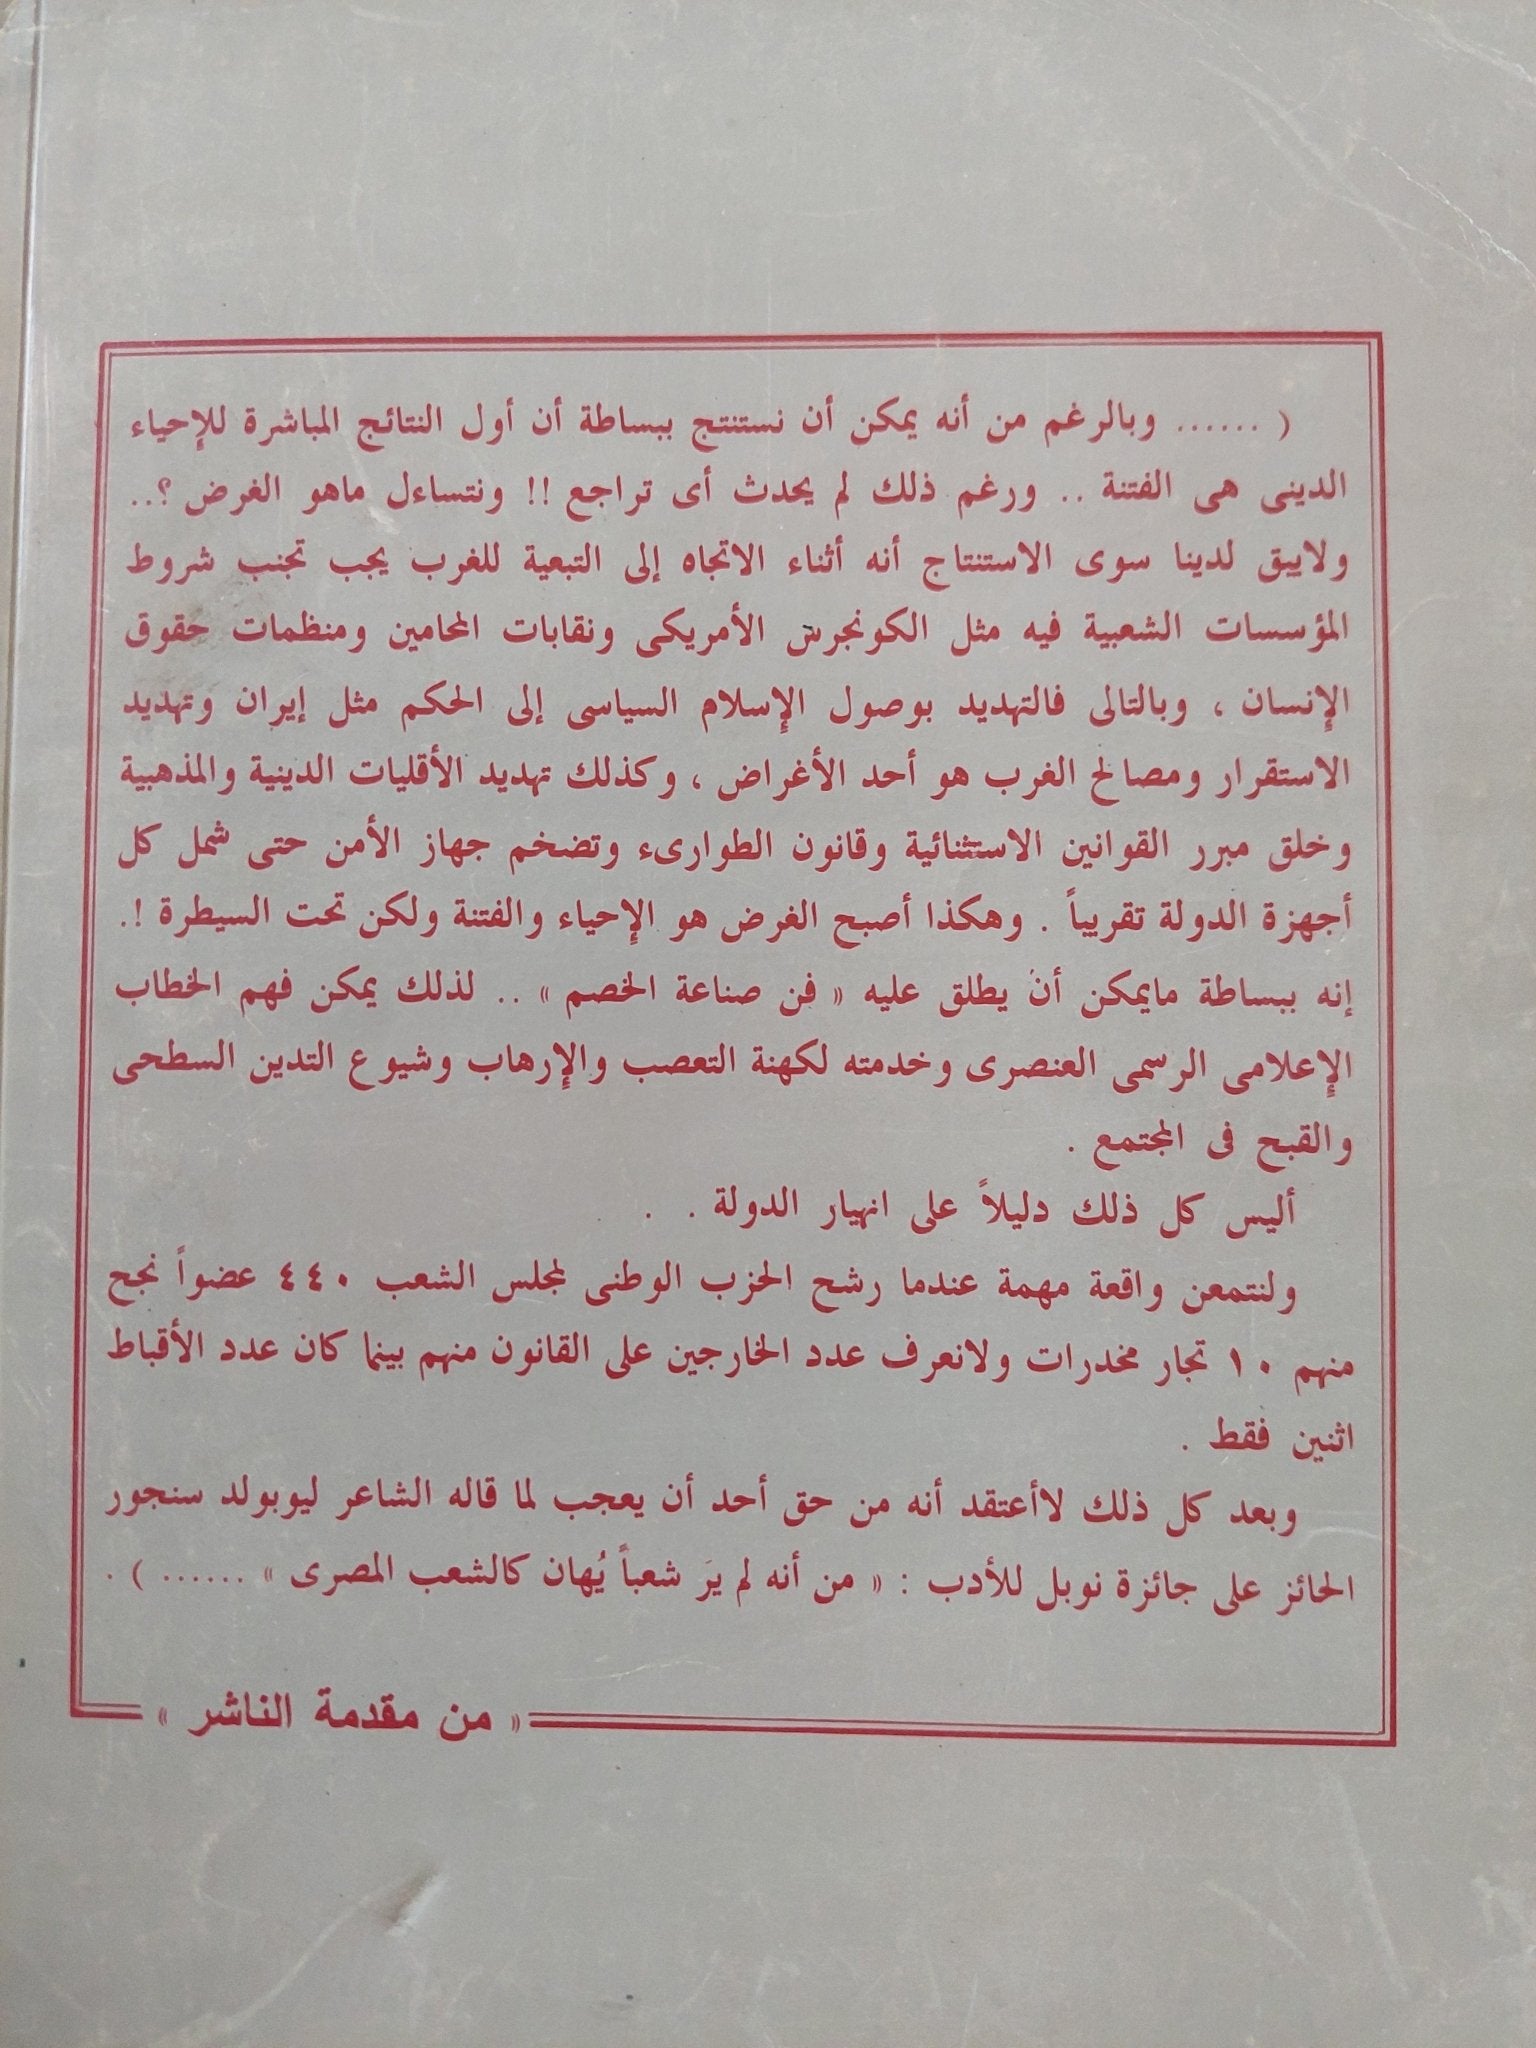 ( ...... وبالرغم من أنه يمكن أن نستنتج ببساطة أن أول النتائج المباشرة للإحياء
الدينى هى الفتنة .. ورغم ذلك لم يحدث أى تراجع !! ونتساءل ماهو الغرض ؟..
ولايبق لدينا سوى الاستنتاج أنه أثناء الاتجاه إلى التبعية للغرب يجب تجنب شروط
المؤسسات الشعبية فيه مثل الكونجرس الأمريكى ونقابات المحامين ومنظمات حقوق
الإنسان ، وبالتالى فالتهديد بوصول الإسلام السياسى إلى الحكم مثل إيران وتهديد
الاستقرار ومصالح الغرب هو أحد الأغراض ، وكذلك تهديد الأقليات الدينية والمذهبية
وخلق مبرر القوانين الاستثنائية وقانون الطوارىء وتضخم جهاز الأمن حتى شمل كل
أجهزة الدولة تقريباً . وهكذا أصبح الغرض هو الإحياء والفتنة ولكن تحت السيطرة !.
إنه ببساطة مايمكن أن يطلق عليه « فن صناعة الخصم » .. لذلك يمكن فهم الخطاب
الإعلامى الرسمى العنصرى وخدمته لكهنة التعصب والإرهاب وشيوع التدين السطحى
والقبح فى المجتمع .
أليس كل ذلك دليلاً على انهيار الدولة . .
ولنتمعن واقعة مهمة عندما رشح الحزب الوطنى لمجلس الشعب ٤٤٠ عضواً نجح
منهم ١٠ تجار مخدرات ولانعرف عدد الخارجين على القانون منهم بينما كان عدد الأقباط
اثنين فقط .
وبعد كل ذلك لاأعتقد أنه من حق أحد أن يعجب لما قاله الشاعر ليوبولد سنجور
الحائز على جائزة نوبل للأدب : « من أنه لم يرَ شعباً يُهان كالشعب المصرى » ...... ) .
« من مقدمة الناشر »